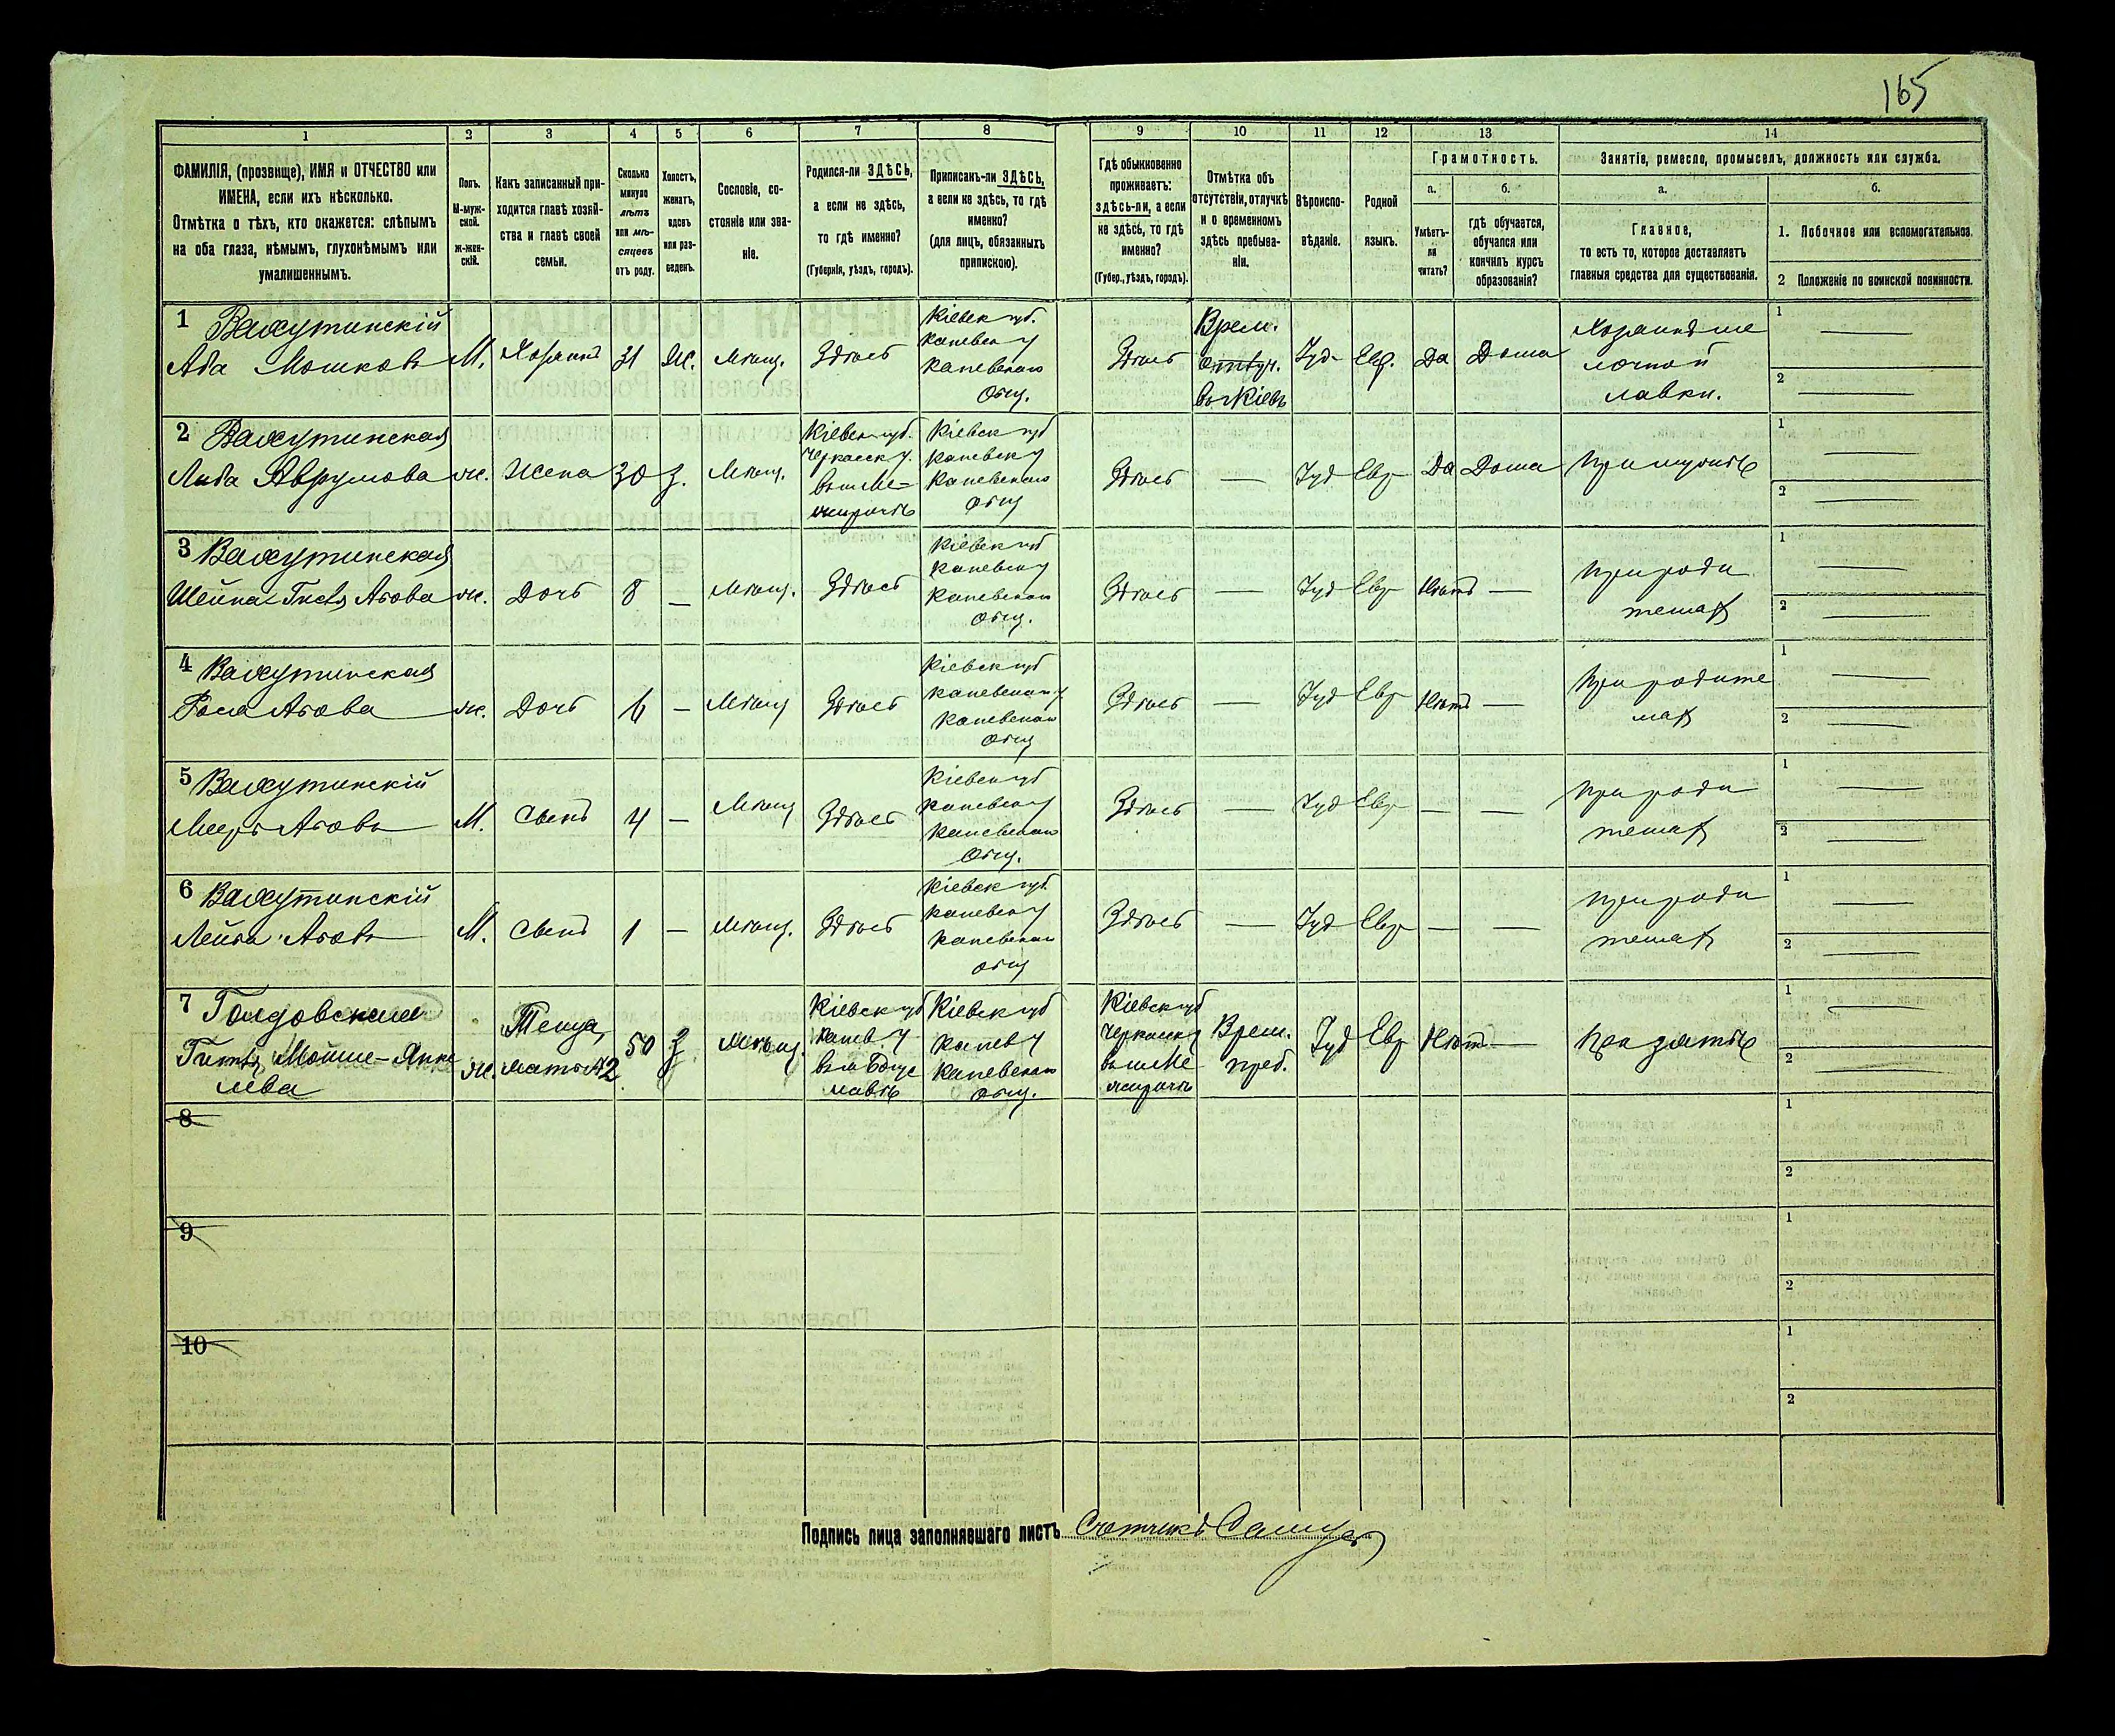 165
1 2 3 4 5 6 7 8 9 10 11 12 13 14
ФАМИЛІЯ, (прозвище), ИМЯ и ОТЧЕСТВО или
ИМЕНА, если ихъ нѣсколько.
Отмѣтка о тѣхъ, кто окажется: слѣпымъ
на оба глаза, нѣмымъ, глухонѣмымъ или
умалишеннымъ.
Полъ.
М-муж-
ской.
ж-жен-
скій.
Какъ записанный при-
ходится главѣ хозяй-
ства и главѣ своей
семьи.
Сколько
минуло
лѣтъ
или мѣ-
сяцевъ
отъ роду.
Холостъ,
женатъ,
вдовъ
или раз-
веденъ.
Сословіе, со-
стояніе или зва-
ніе.
Родился-ли ЗДѢСЬ,
а если не здѣсь,
то гдѣ именно?
(Губернія, уѣздъ, городъ).
Приписанъ-ли ЗДѢСЬ,
а если не здѣсь, то гдѣ
именно?
(для лицъ, обязанныхъ
припискою).
Гдѣ обыкновенно
проживаетъ:
здѣсь-ли, а если
не здѣсь, то гдѣ
именно?
(Губер., уѣздъ, городъ).
Отмѣтка объ
отсутствіи, отлучкѣ
и о временномъ
здѣсь пребыва-
ніи.
Вѣроиспо-
вѣданіе.
Родной
языкъ.
Грамотность.
а.
Умѣетъ-
ли
читать?
б.
гдѣ обучается,
обучался или
кончилъ курсъ
образованія?
Занятіе, ремесло, промыселъ, должность или служба.
а.
Главное,
то есть то, которое доставляетъ
главныя средства для существованія.
б.
1. Побочное или вспомогательное.
2 Положеніе по воинской повинности.
1
Аба Мошковъ
М.
Хозяинъ
31
Ж.
Мѣщ.
Здѣсь
Кіевск губ.
Каневск у
Каневскаго
Общ.
Здѣсь
Врем.
отлуч.
въ г Кіевъ
Іуд
Евр.
Да
Дома
Хозяинъ ме
лочной
лавки.
1
2
2
Аврумова
ж.
Жена
30
З.
Мѣщ.
Кіевск губ.
Черкасск у.
въ м Ме-
жиричѣ
Кіевск губ
Каневск у
Каневскаго
Общ
Здѣсь
Іуд
Евр
Да
Дома
При мужѣ
1
2
3
Шейна Аbова
ж.
Дочь
8
Мѣщ.
Здѣсь
Кіевск губ
Каневск у
Каневскаго
Общ.
Здѣсь
Іуд
Евр
Нѣтъ
При роди
телях
1
2
4
ж.
Дочь
6
Мѣщ
Здѣсь
Кіевск губ
Каневскаго у
Каневскаго
Общ
Здѣсь
Іуд
Евр
Нѣтъ
При родите
лях
1
2
5
М.
Сынъ
4
Мѣщ
Здѣсь
Кіевск губ
Каневск у
Каневскаго
Общ.
Здѣсь
Іуд
Евр
При роди
телях
1
2
6
М.
Сынъ
1
Мѣщ.
Здѣсь
Кіевск губ.
Каневск у
Каневскаго
Общ
Здѣсь
Іуд
Евр
При роди
телях
1
2
7
Мойше-Янке
лева
ж.
Теща,
мать №2
50
З
Мѣщ.
Кіевск губ
Канев. у
въ м Богус
лавѣ
Кіевск губ
Канев у
Каневскаго
Общ.
Кіевск губ
Черкасск у
въ м Ме
жиричѣ
Врем.
преб.
Іуд
Евр
Нѣтъ
При зятѣ
1
2
8
1
2
9
1
2
10
1
2
Подпись лица заполнявшаго листъ Счетчикъ